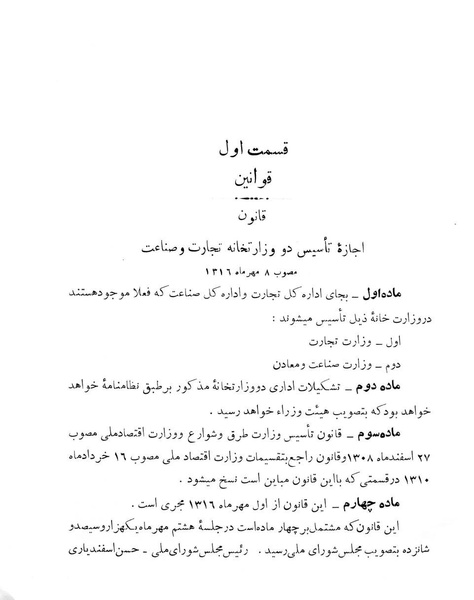 قسمت اول
قوانین
قانون
اجازهٔ تأسیس دو وزارتخانه تجارت و صناعت
مصوب ۸ مهرماه ۱۳۱۶
ماده اول – بجای اداره کل تجارت و اداره کل صناعت که فعلا موجود هستند
دو وزارت خانهٔ ذیل تأسیس میشوند :
اول – وزارت تجارت
دوم – وزارت صناعت و معادن
ماده دوم – تشکیلات اداری دو وزارتخانهٔ مذکور بر طبق نظامنامهٔ خواهد
خواهد بود که بتصویب هیئت وزراء خواهد رسید .
ماده سوم – قانون تأسیس وزارت طرق و شوارع و وزارت اقتصاد ملی مصوب
۲۷ اسفندماه ۱۳۰۸ و قانون راجع بتقسیمات وزارت اقتصاد ملی مصوب ۱۶ خردادماه
۱۳۱۰ در قسمتی که با این قانون مباین است نسخ میشود .
ماده چهارم – این قانون از اول مهرماه ۱۳۱۶ مجری است .
این قانون که مشتمل بر چهار ماده است در جلسهٔ هشتم مهرماه یکهزار و سیصد و
شانزده بتصویب مجلس شورای ملی رسید . رئیس مجلس شورای ملی – حسن اسفندیاری